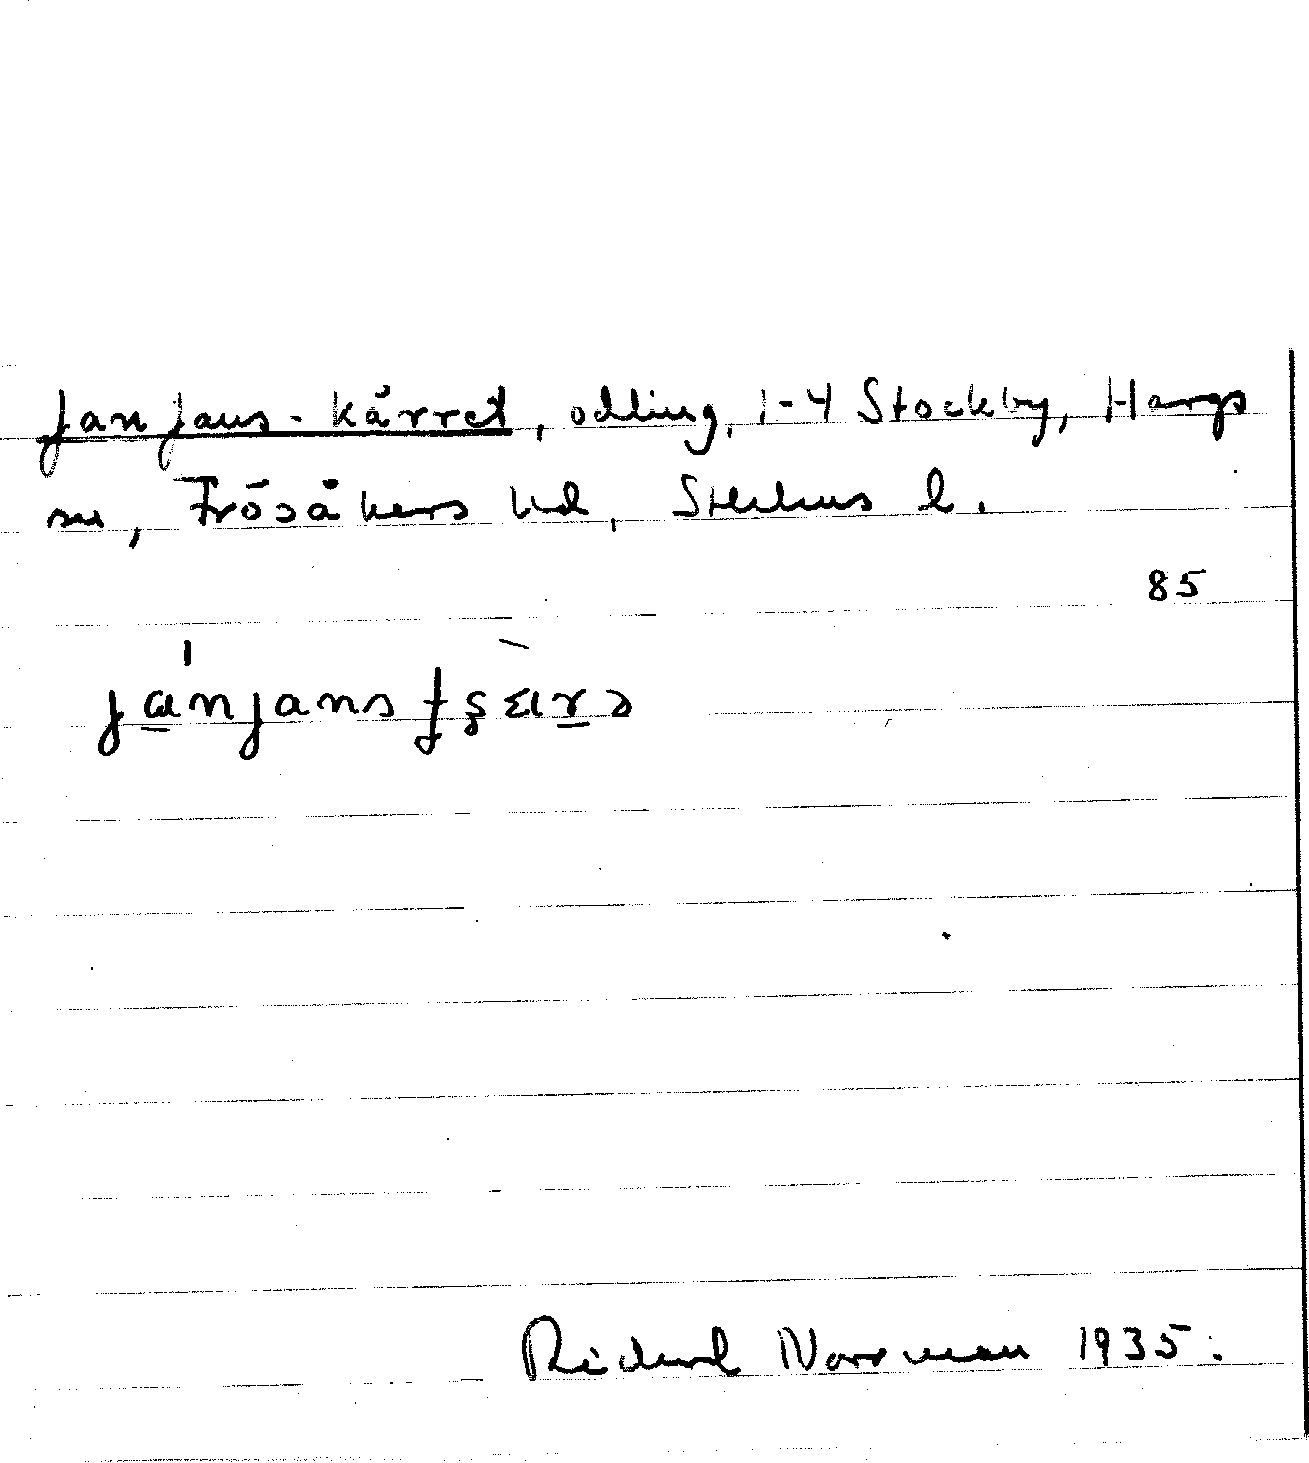 Jan Jans-kärret, odling, 1-4 Stockby, Hargs
sn, Frösåkers hd, Sthlms l.
85
janjans
Richard Norrman 1935.